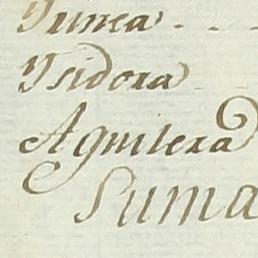 Ysidora
Aguilera
Suma